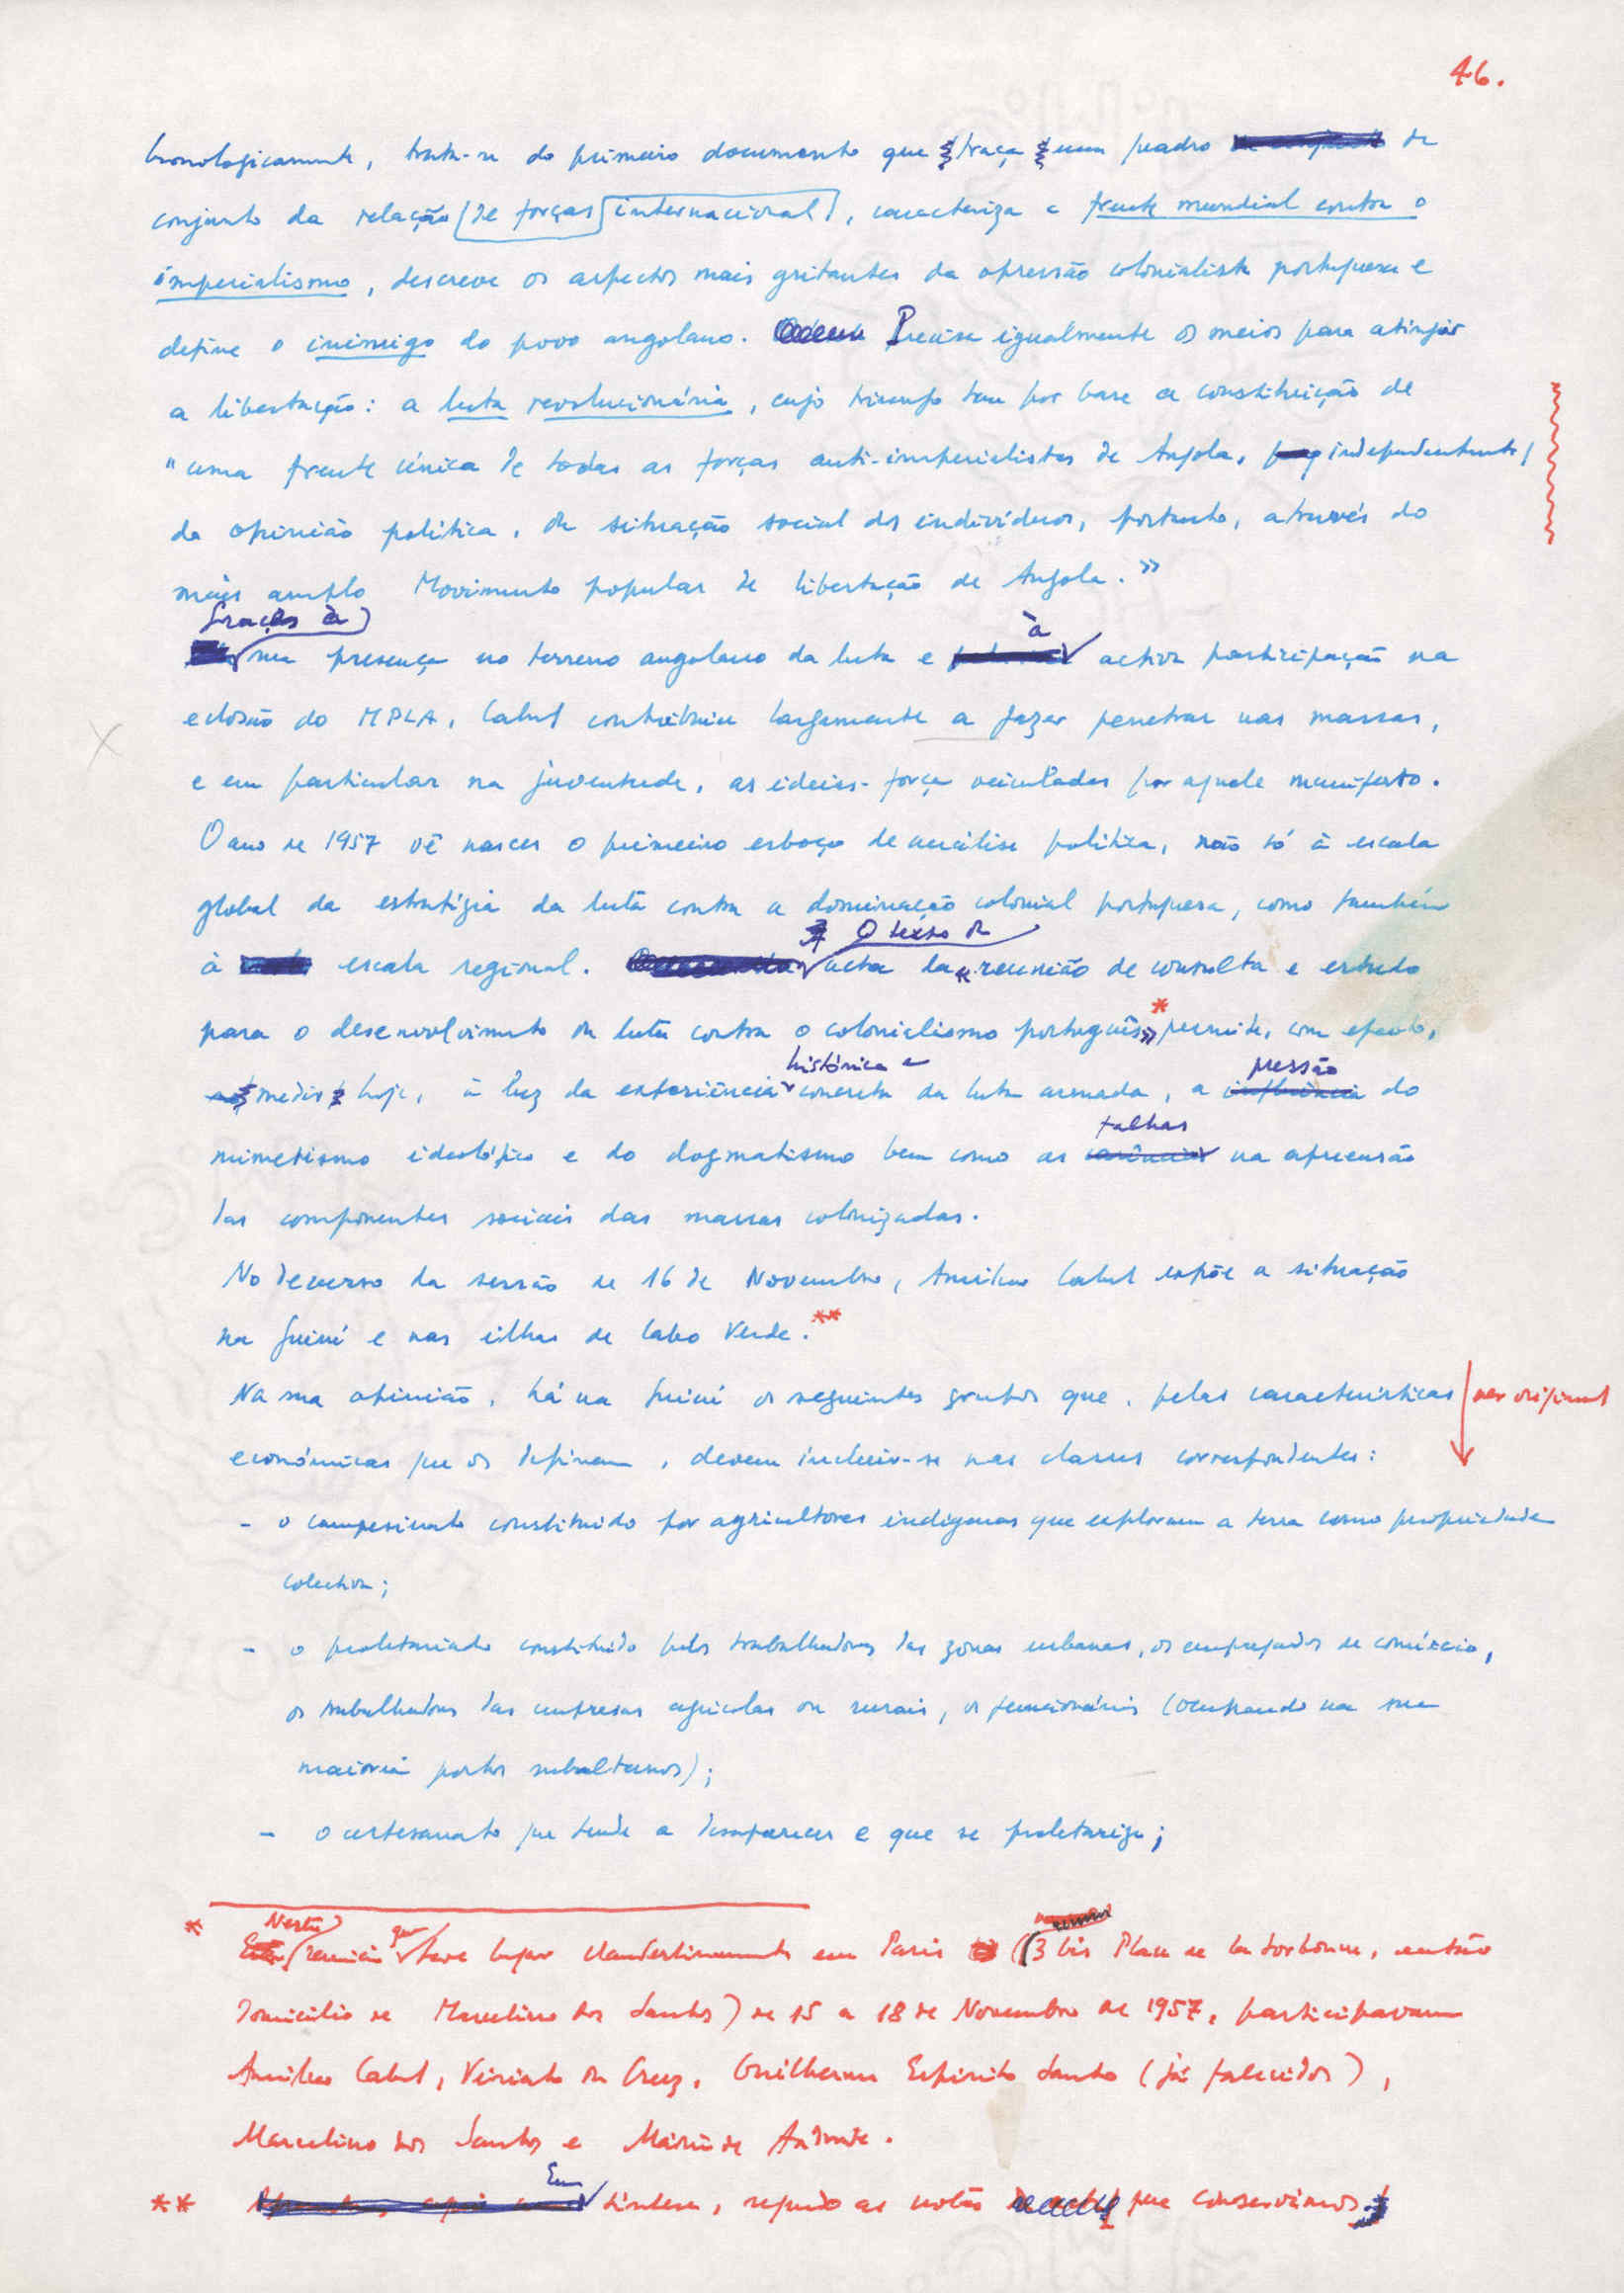 46.
Cronologicamente, trata-se do primeiro documento que traça um quadro de
conjunto da relação de forças internacional, caracteriza a frente mundial contra o
imperialismo, descreve os aspectos mais gritantes da opressão colonialista portuguesa e
define o inimigo do povo angolano. Precisa igualmente os meios para atingir
a libertação: a luta revolucionária, cujo triunfo tem por base a constituição de
"uma frente única de todas as forças anti-imperialistas de Angola, independentemente
da opinião política, da situação social dos indivíduos, portanto, através do
mais amplo Movimento popular de libertação de Angola."
Graças à
sua presença no terreno angolano da luta e à activa participação na
eclosão do MPLA, Cabral contribuiu largamente a fazer penetrar nas massas,
e em particular na juventude, as ideias-força veiculadas por aquele manifesto.
O ano de 1957 vê nascer o primeiro esboço de análise política, não só à escala
global da estratégia da luta contra a dominação colonial portuguesa, como também
O texto da
à escala regional. acta da «reunião de consulta e estudo
para o desenvolvimento da luta contra o colonialismo português»* permite, com efeito,
histórica e pressão
medir hoje, à luz da experiência concreta da luta armada, a influência do
falhas
mimetismo ideológico e do dogmatismo bem como as carências na apreensão
das componentes sociais das massas colonizadas.
No decurso da sessão de 16 de Novembro, Amílcar Cabral expõe a situação
na Guiné e nas ilhas de Cabo Verde.**
Na sua opinião, há na Guiné os seguintes grupos que, pelas características ver original
económicas que os definem, devem incluir-se nas classes correspondentes:
- o campesinato constituido por agricultores indígenas que exploram a terra como propriedade
colectiva;
- o proletariado constituido pelos trabalhadores das zonas urbanas, os empregados de comércio,
os trabalhadores das empresas agrícolas ou rurais, os funcionários (ocupando na sua
maioria postos subalternos);
- o artesanato que tende a desaparecer e que se proletariza;
Nesta que
* Esta reunião teve lugar clandestinamente em Paris (3 bis Place de la Sorbonne, então
domicílio de Marcelino dos Santos) de 15 a 18 de Novembro de 1957, participavam
Amílcar Cabral, Viriato da Cruz, Guilherme Espírito Santo (já falecidos),
Marcelino dos Santos e Mário de Andrade.
Em
** síntese, segundo as notas que conservámos.